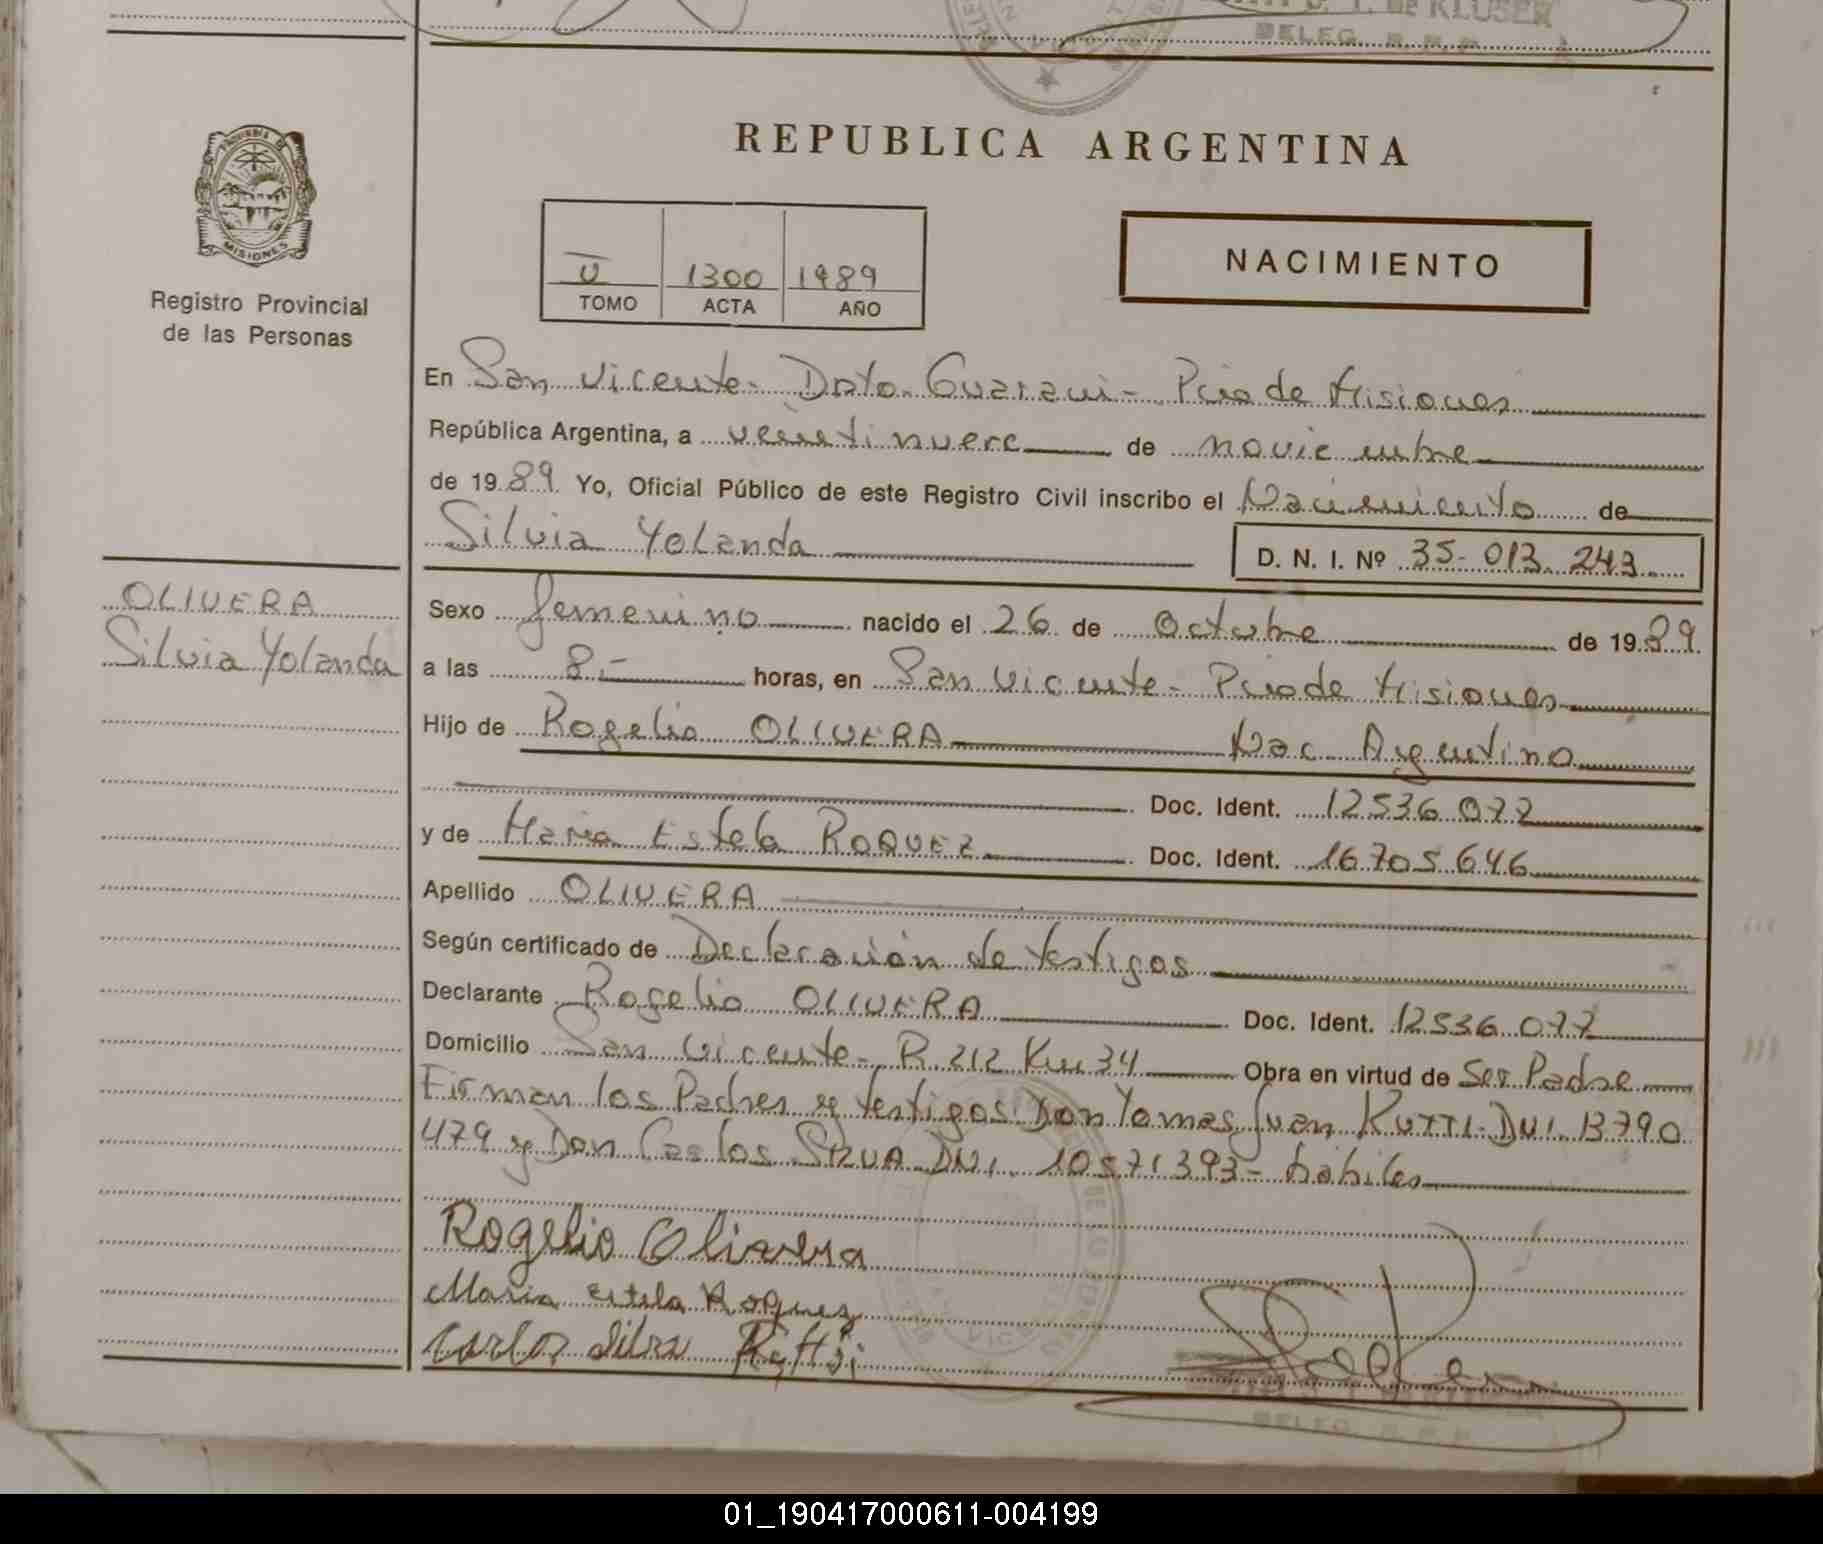 DE KLUSER
DELEG. R. P. P.
REPUBLICA ARGENTINA
MISIONES
Registro Provincial
de las Personas
V 1300 1989
TOMO ACTA AÑO
NACIMIENTO
En San Vicente - Dpto. Guarani - Pcia de Misiones
República Argentina, a veintinueve de noviembre
de 1989 Yo, Oficial Público de este Registro Civil inscribo el Nacimiento de
Silvia Yolanda
D. N. I. Nº 35.013.243
OLIVERA
Silvia Yolanda
Sexo femenino nacido el 26 de Octubre de 1989
a las 8.- horas, en San Vicente - Pcia de Misiones
Hijo de Rogelio OLIVERA Nac Argentino
Doc. Ident. 12536.077
y de Maria Estela ROQUEZ Doc. Ident. 16.705.646
Apellido OLIVERA
Según certificado de Declaración de testigos
Declarante Rogelio OLIVERA Doc. Ident. 12536.077
Domicilio San Vicente - R. 212 Km 34 Obra en virtud de Ser Padre
Firman los Padres y testigos Don Tomas Juan DNI. 13790
479 y Don Carlos SILVA DNI. 10571393 - hábiles
Rogelio Olivera
Maria Estela Roquez
Carlos Silva
DELEG. R. P. P.
01_190417000611-004199